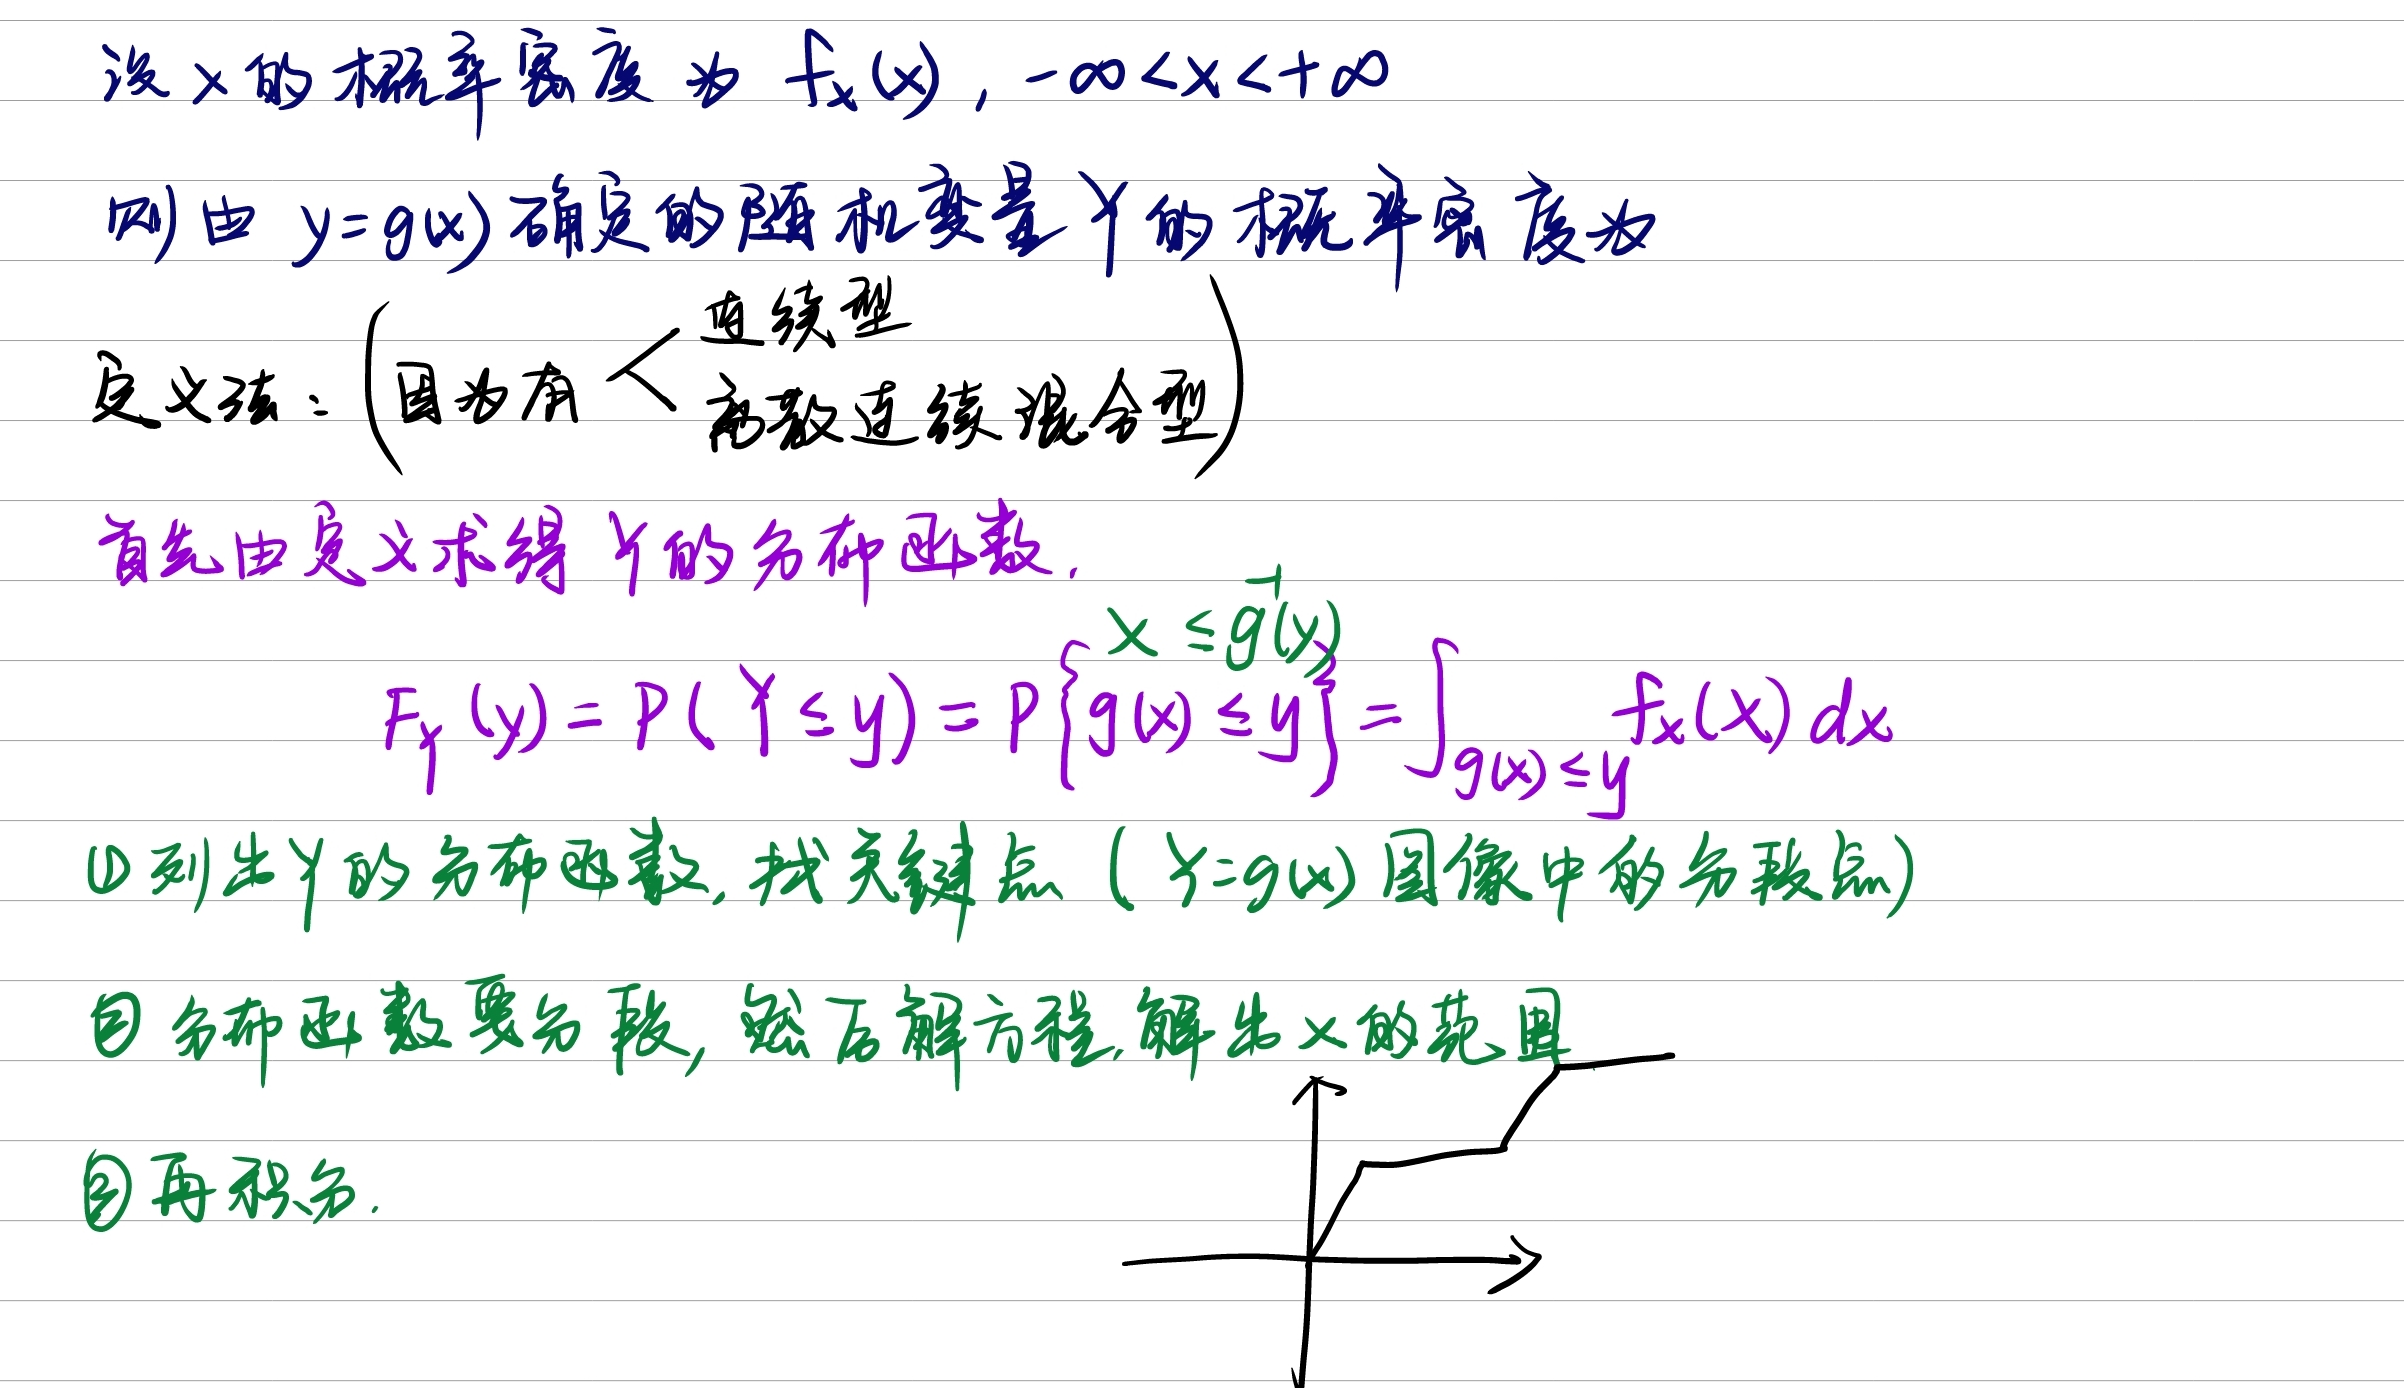 设X的概率密度为 fx(x), -∞<x<+∞
则由 y=g(x)确定的随机变量Y的概率密度为
连续型
定义法:(因为有<
离散连续混合型)
首先由定义求得Y的分布函数.
x ≤ g⁻¹(y)
F_Y(y) = P(Y≤y) = P{g(x)≤y} = ∫_{g(x)≤y} f_x(x)dx
①列出Y的分布函数,找关键点(Y=g(x)图像中的分段点)
②分布函数要分段,然后解方程,解出x的范围
③再积分.